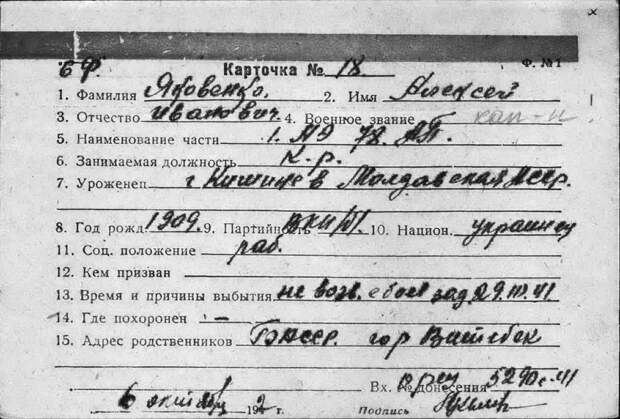 6 Ф. Карточка № 18. Ф. №1
1. Фамилия Яковенко. 2. Имя Алексей
3. Отчество Иванович. 4. Военное звание кап-н
5. Наименование части 1. АЭ 78. АП.
6. Занимаемая должность К.р.
7. Уроженец г Кишинев Молдавская АССР.
8. Год рожд. 1909. 9. Партийность ВКП/б/. 10. Национ. украинец
11. Соц. положение раб.
12. Кем призван
13. Время и причины выбытия не возв. с боев зад.
14. Где похоронен —
15. Адрес родственников БАССР. гор Витебск
Вх. № донесения 41
6 192 г. Подпись